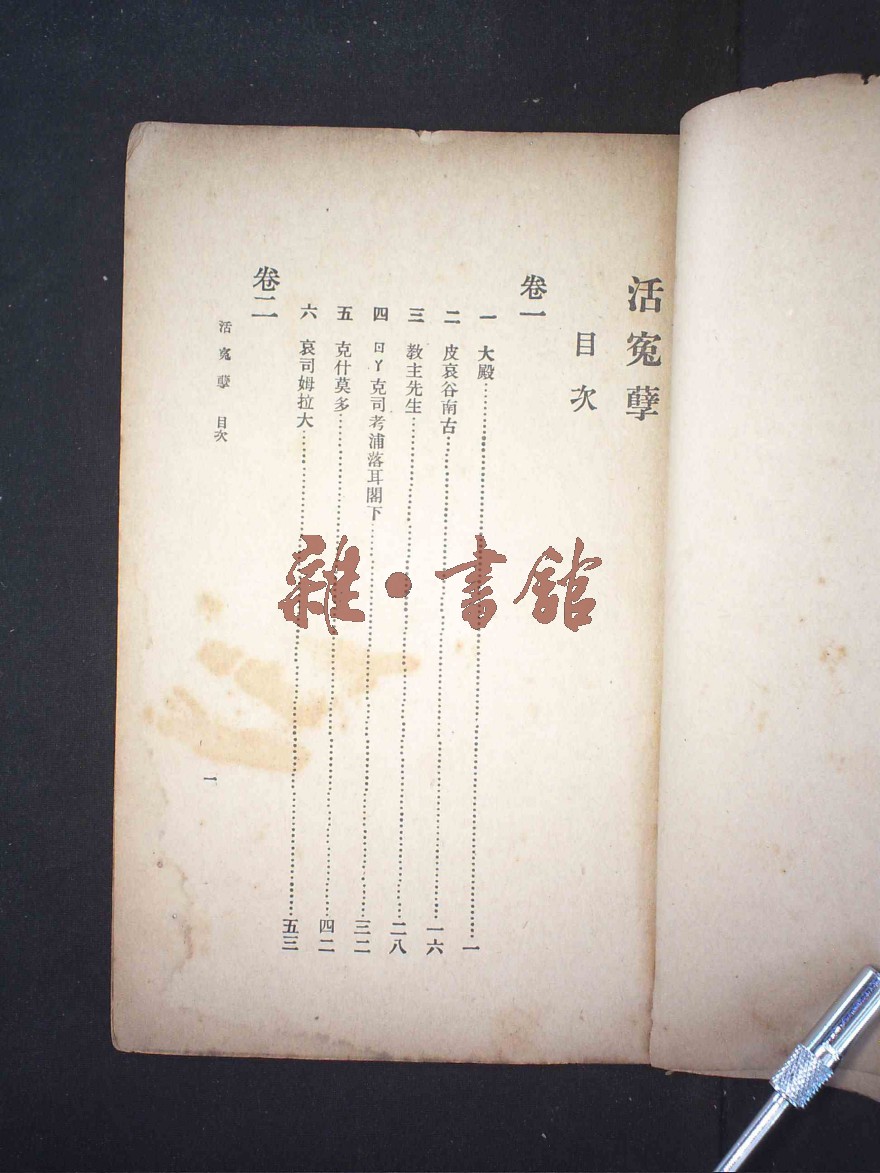 活寃孽
目次
卷一
一 大殿……一
二 皮哀谷南古……一六
三 教主先生……二八
四 ㄖㄚ克司考浦落耳閣下……三二
五 克什莫多……四二
六 哀司姆拉大……五三
卷二
活寃孽 目次
一
雜·書館